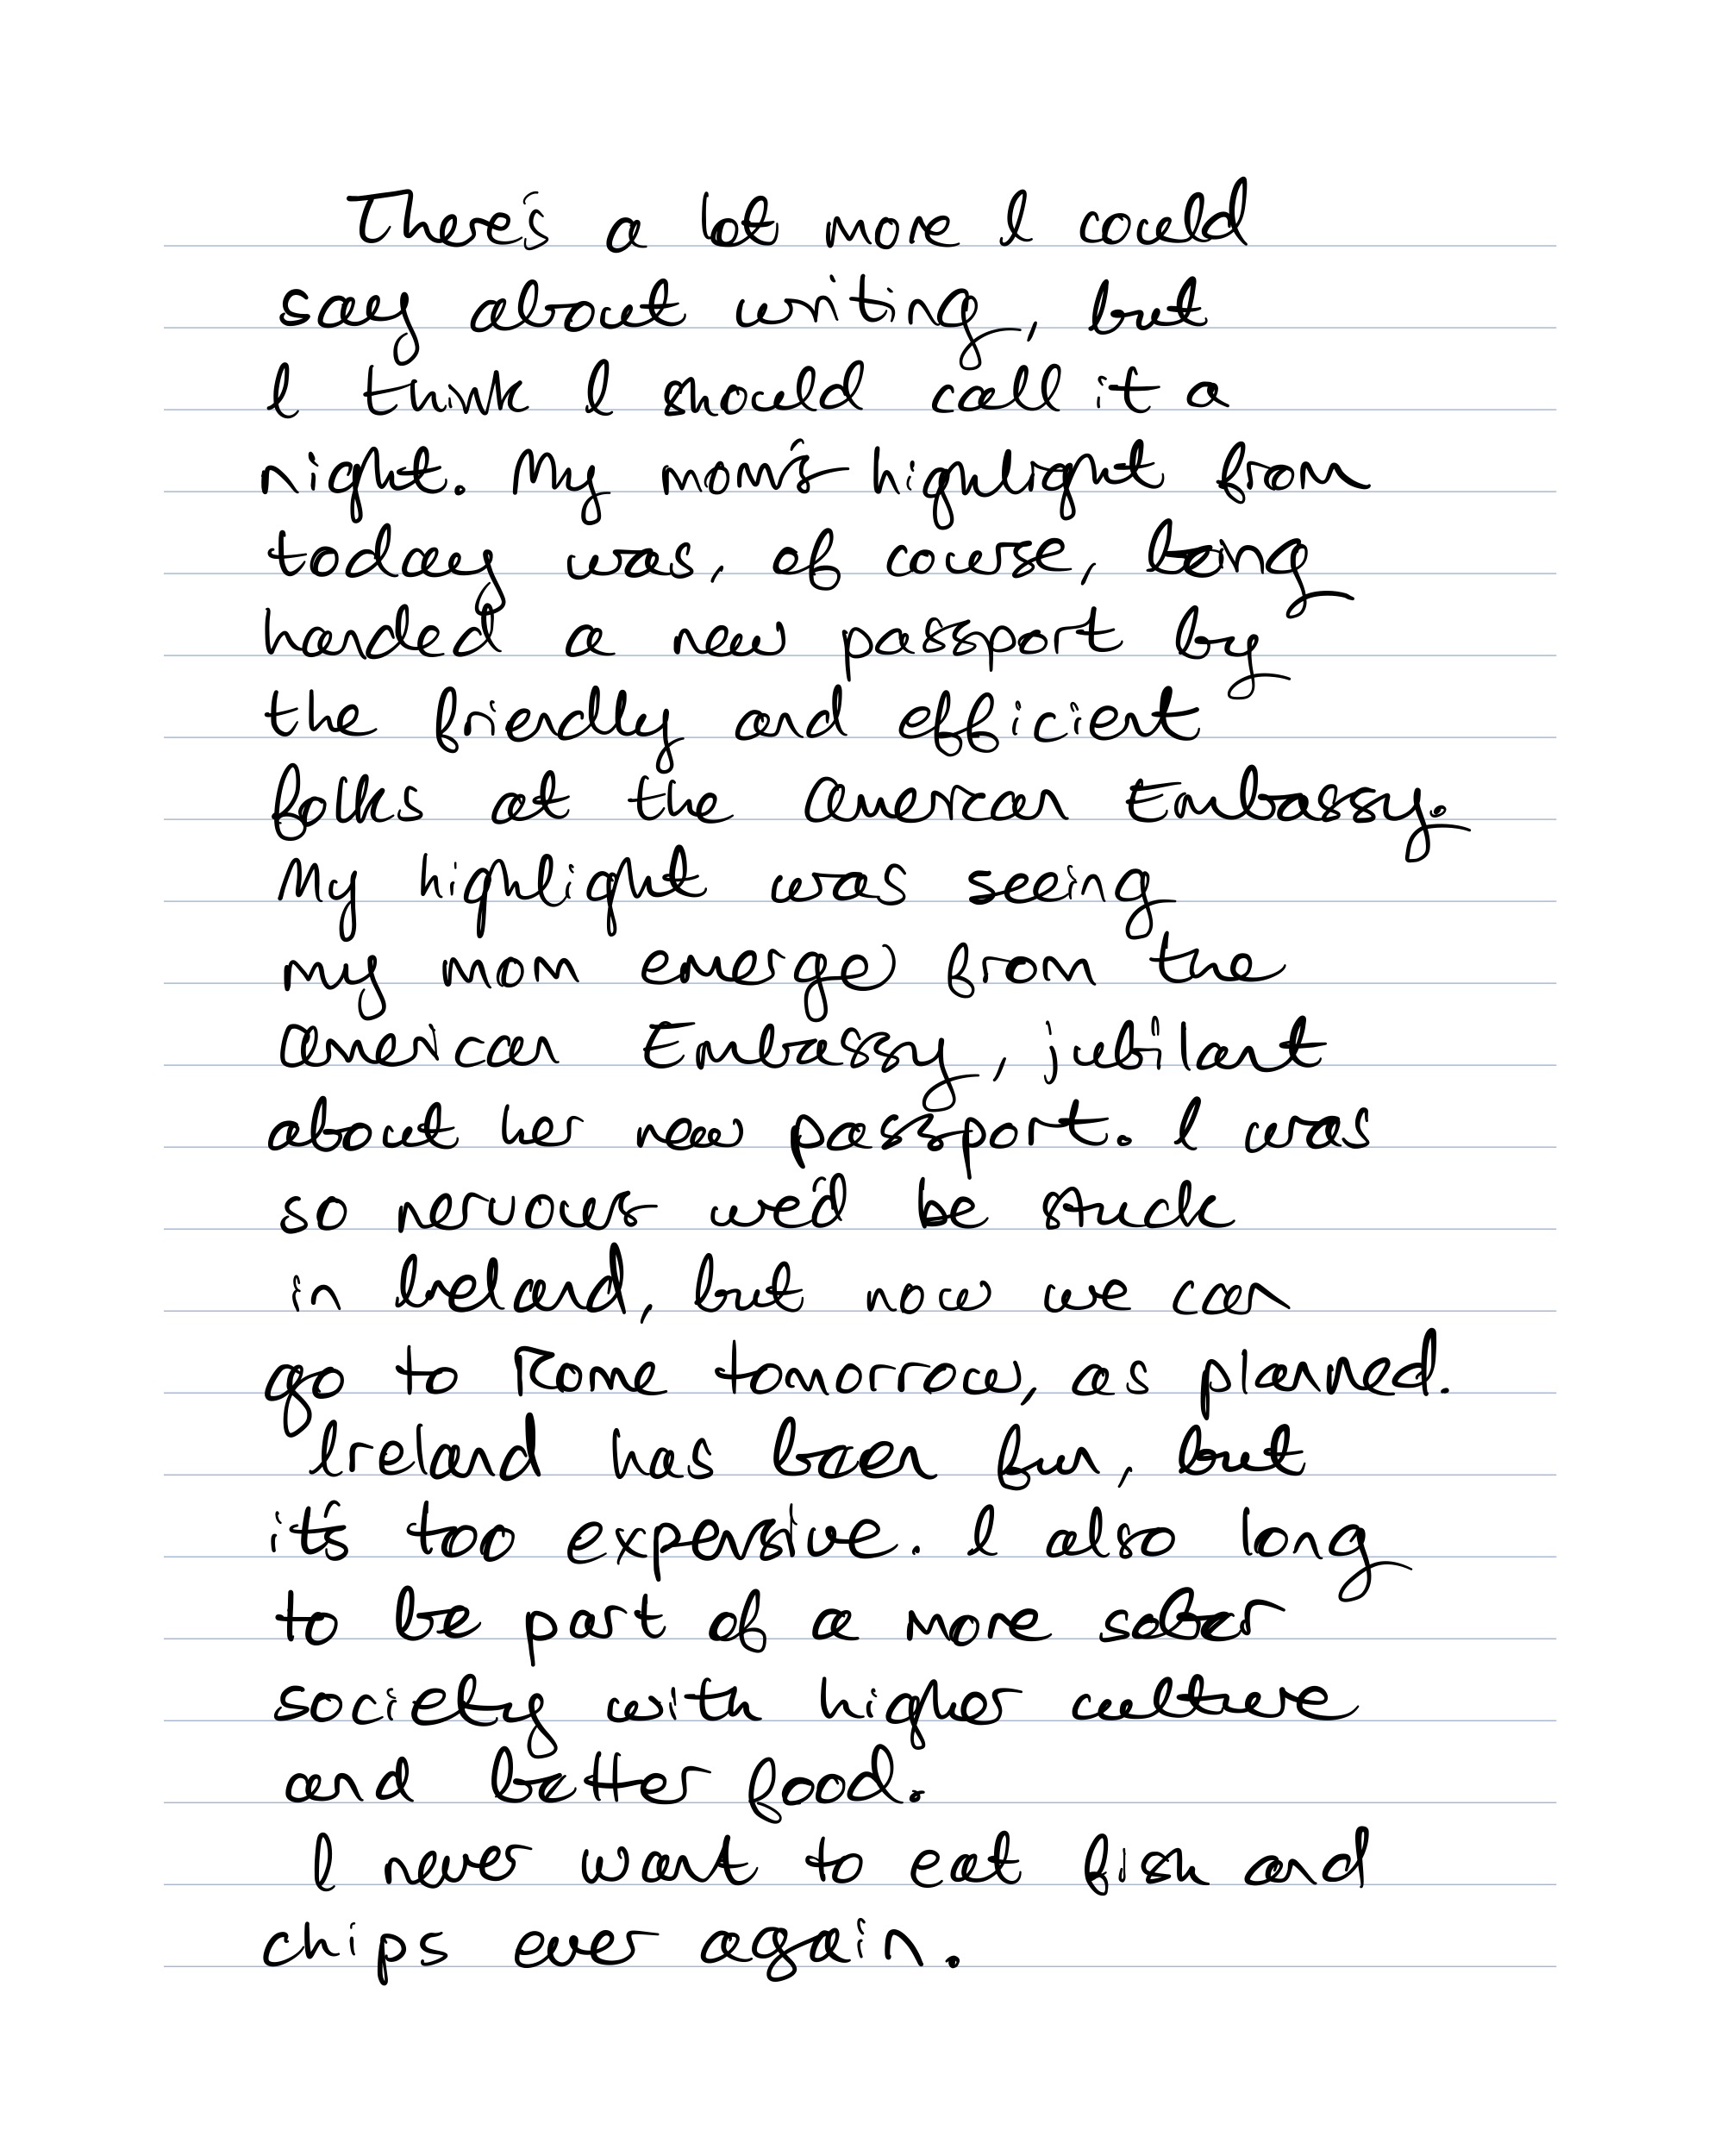 There's a lot more I could
say about writing, but
I think I should call it a
night. My mom's highlight from
today was, of course, being
handed a new passport by
the friendly and efficient
folks at the American Embassy.
My highlight was seeing
my mom emerge from the
American Embassy, jubilant
about her new passport. I was
so nervous we'd be stuck
in Ireland, but now we can
go to Rome tomorrow, as planned.
Ireland has been fun, but
it's too expensive. I also long
to be part of a more sober
society with higher culture
and better food.
I never want to eat fish and
chips ever again.